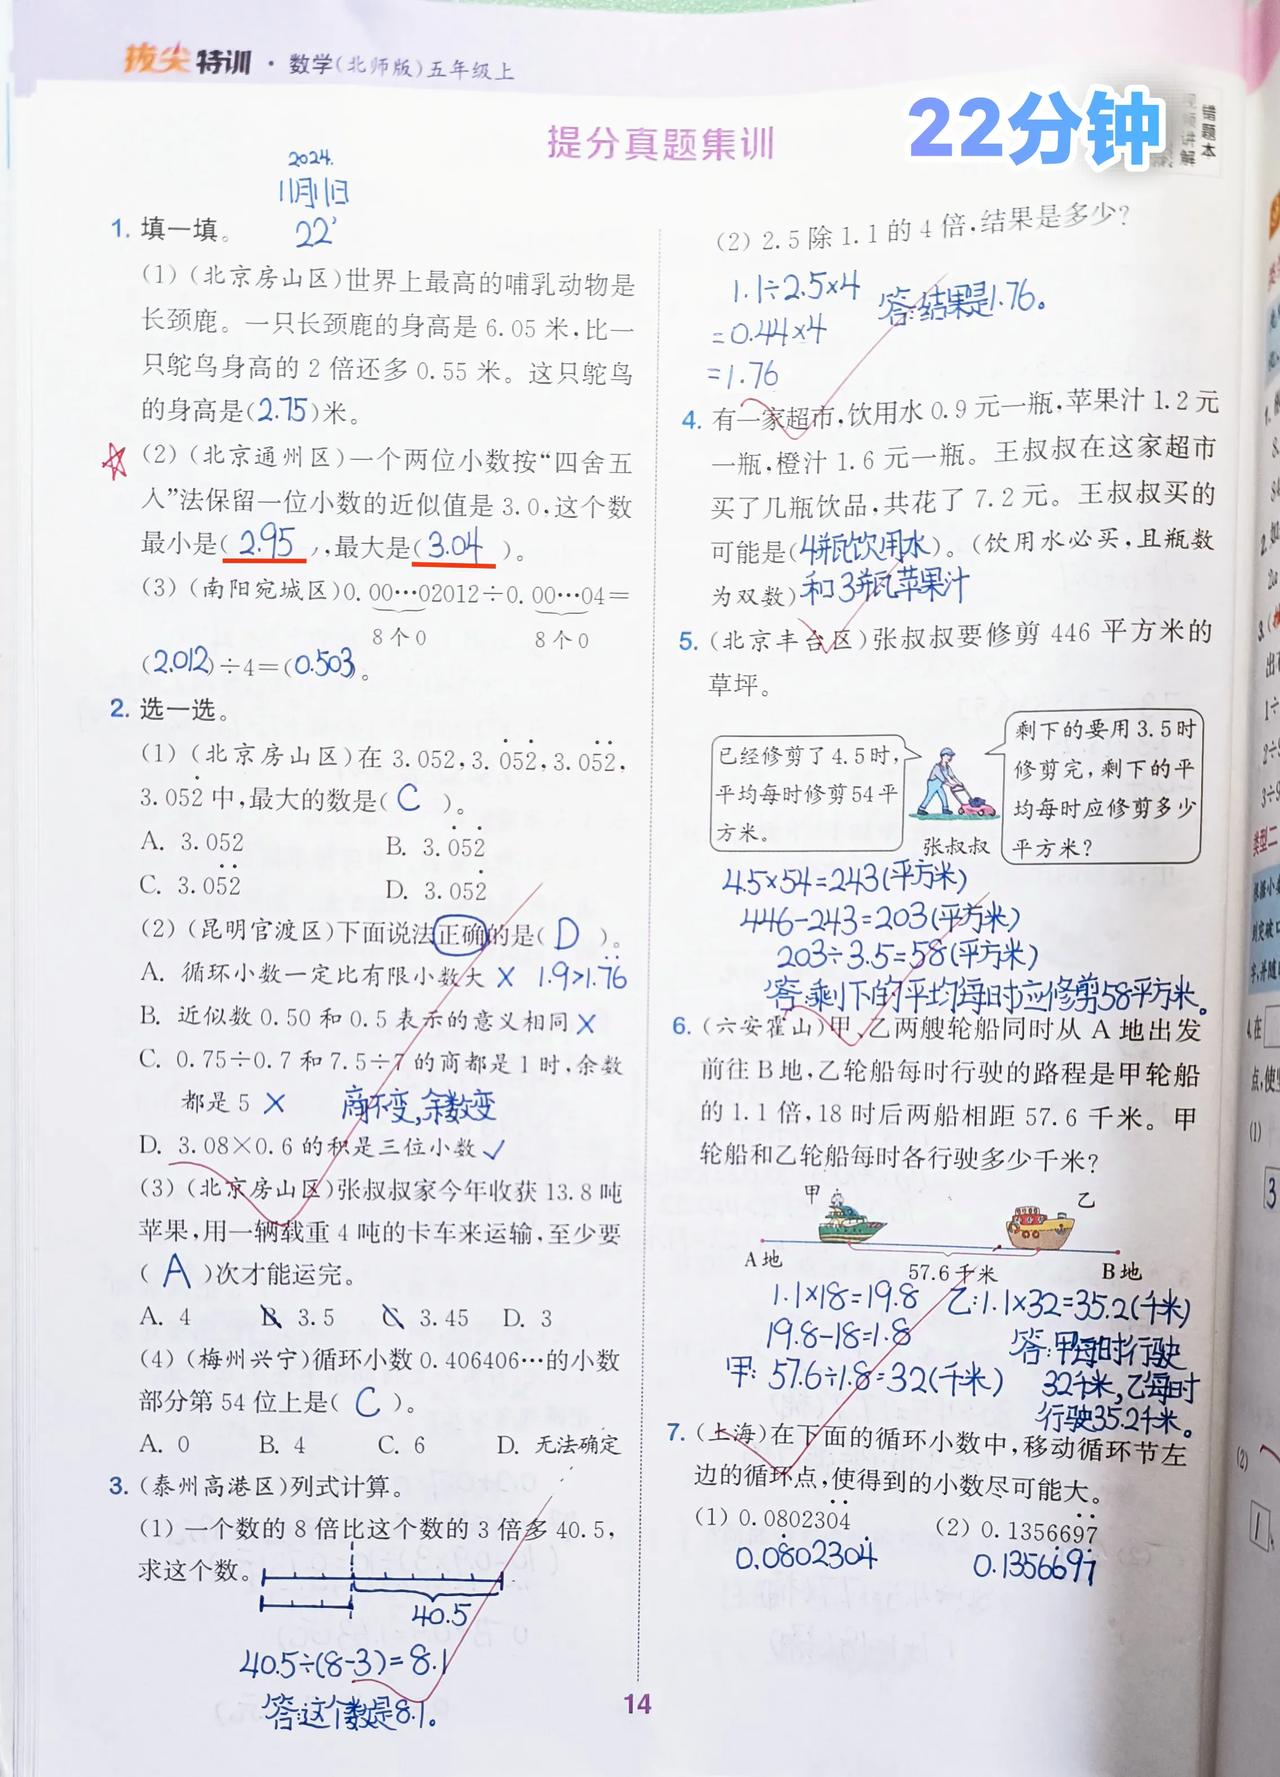 拔尖特训·数学(北师版)五年级上
22分钟
错题本
视频讲解
提分真题集训
2024.
11月11日
22'
1. 填一填。
(1)(北京房山区)世界上最高的哺乳动物是
长颈鹿。一只长颈鹿的身高是6.05米,比一
只鸵鸟身高的2倍还多0.55米。这只鸵鸟
的身高是(2.75)米。
(2)(北京通州区)一个两位小数按“四舍五
入”法保留一位小数的近似值是3.0,这个数
最小是(2.95),最大是(3.04)。
(3)(南阳宛城区)0.00…02012÷0.00…04=
8个0 8个0
(2.012)÷4=(0.503)。
2. 选一选。
(1)(北京房山区)在3.052,3.0̇52̇,3.05̇2̇,
3.052̇中,最大的数是(C)。
A. 3.052 B. 3.0̇52̇
C. 3.05̇2̇ D. 3.052̇
(2)(昆明官渡区)下面说法正确的是(D)。
A. 循环小数一定比有限小数大 × 1.9>1.7̇6̇
B. 近似数0.50和0.5表示的意义相同×
C. 0.75÷0.7和7.5÷7的商都是1时,余数
都是5 × 商不变,余数变
D. 3.08×0.6的积是三位小数✓
(3)(北京房山区)张叔叔家今年收获13.8吨
苹果,用一辆载重4吨的卡车来运输,至少要
(A)次才能运完。
A. 4 B. 3.5 C. 3.45 D. 3
(4)(梅州兴宁)循环小数0.406406…的小数
部分第54位上是(C)。
A. 0 B. 4 C. 6 D. 无法确定
3. (泰州高港区)列式计算。
(1)一个数的8倍比这个数的3倍多40.5,
求这个数。
40.5
40.5÷(8-3)=8.1
答:这个数是8.1。
(2)2.5除1.1的4倍,结果是多少?
1.1÷2.5×4 答:结果是1.76。
=0.44×4
=1.76
4. 有一家超市,饮用水0.9元一瓶,苹果汁1.2元
一瓶,橙汁1.6元一瓶。王叔叔在这家超市
买了几瓶饮品,共花了7.2元。王叔叔买的
可能是(4瓶饮用水)。(饮用水必买,且瓶数
为双数)和3瓶苹果汁
5. (北京丰台区)张叔叔要修剪446平方米的
草坪。
已经修剪了4.5时,
平均每时修剪54平
方米。
剩下的要用3.5时
修剪完,剩下的平
均每时应修剪多少
平方米?
张叔叔
4.5×54=243(平方米)
446-243=203(平方米)
203÷3.5=58(平方米)
答:剩下的平均每时应修剪58平方米。
6. (六安霍山)甲、乙两艘轮船同时从A地出发
前往B地,乙轮船每时行驶的路程是甲轮船
的1.1倍,18时后两船相距57.6千米。甲
轮船和乙轮船每时各行驶多少千米?
甲 乙
A地 57.6千米 B地
1.1×18=19.8 乙:1.1×32=35.2(千米)
19.8-18=1.8 答:甲每时行驶
甲:57.6÷1.8=32(千米) 32千米,乙每时
行驶35.2千米。
7. (上海)在下面的循环小数中,移动循环节左
边的循环点,使得到的小数尽可能大。
(1)0.080230̇4̇ (2)0.135669̇7̇
0.08̇02304̇ 0.13566̇97̇
14